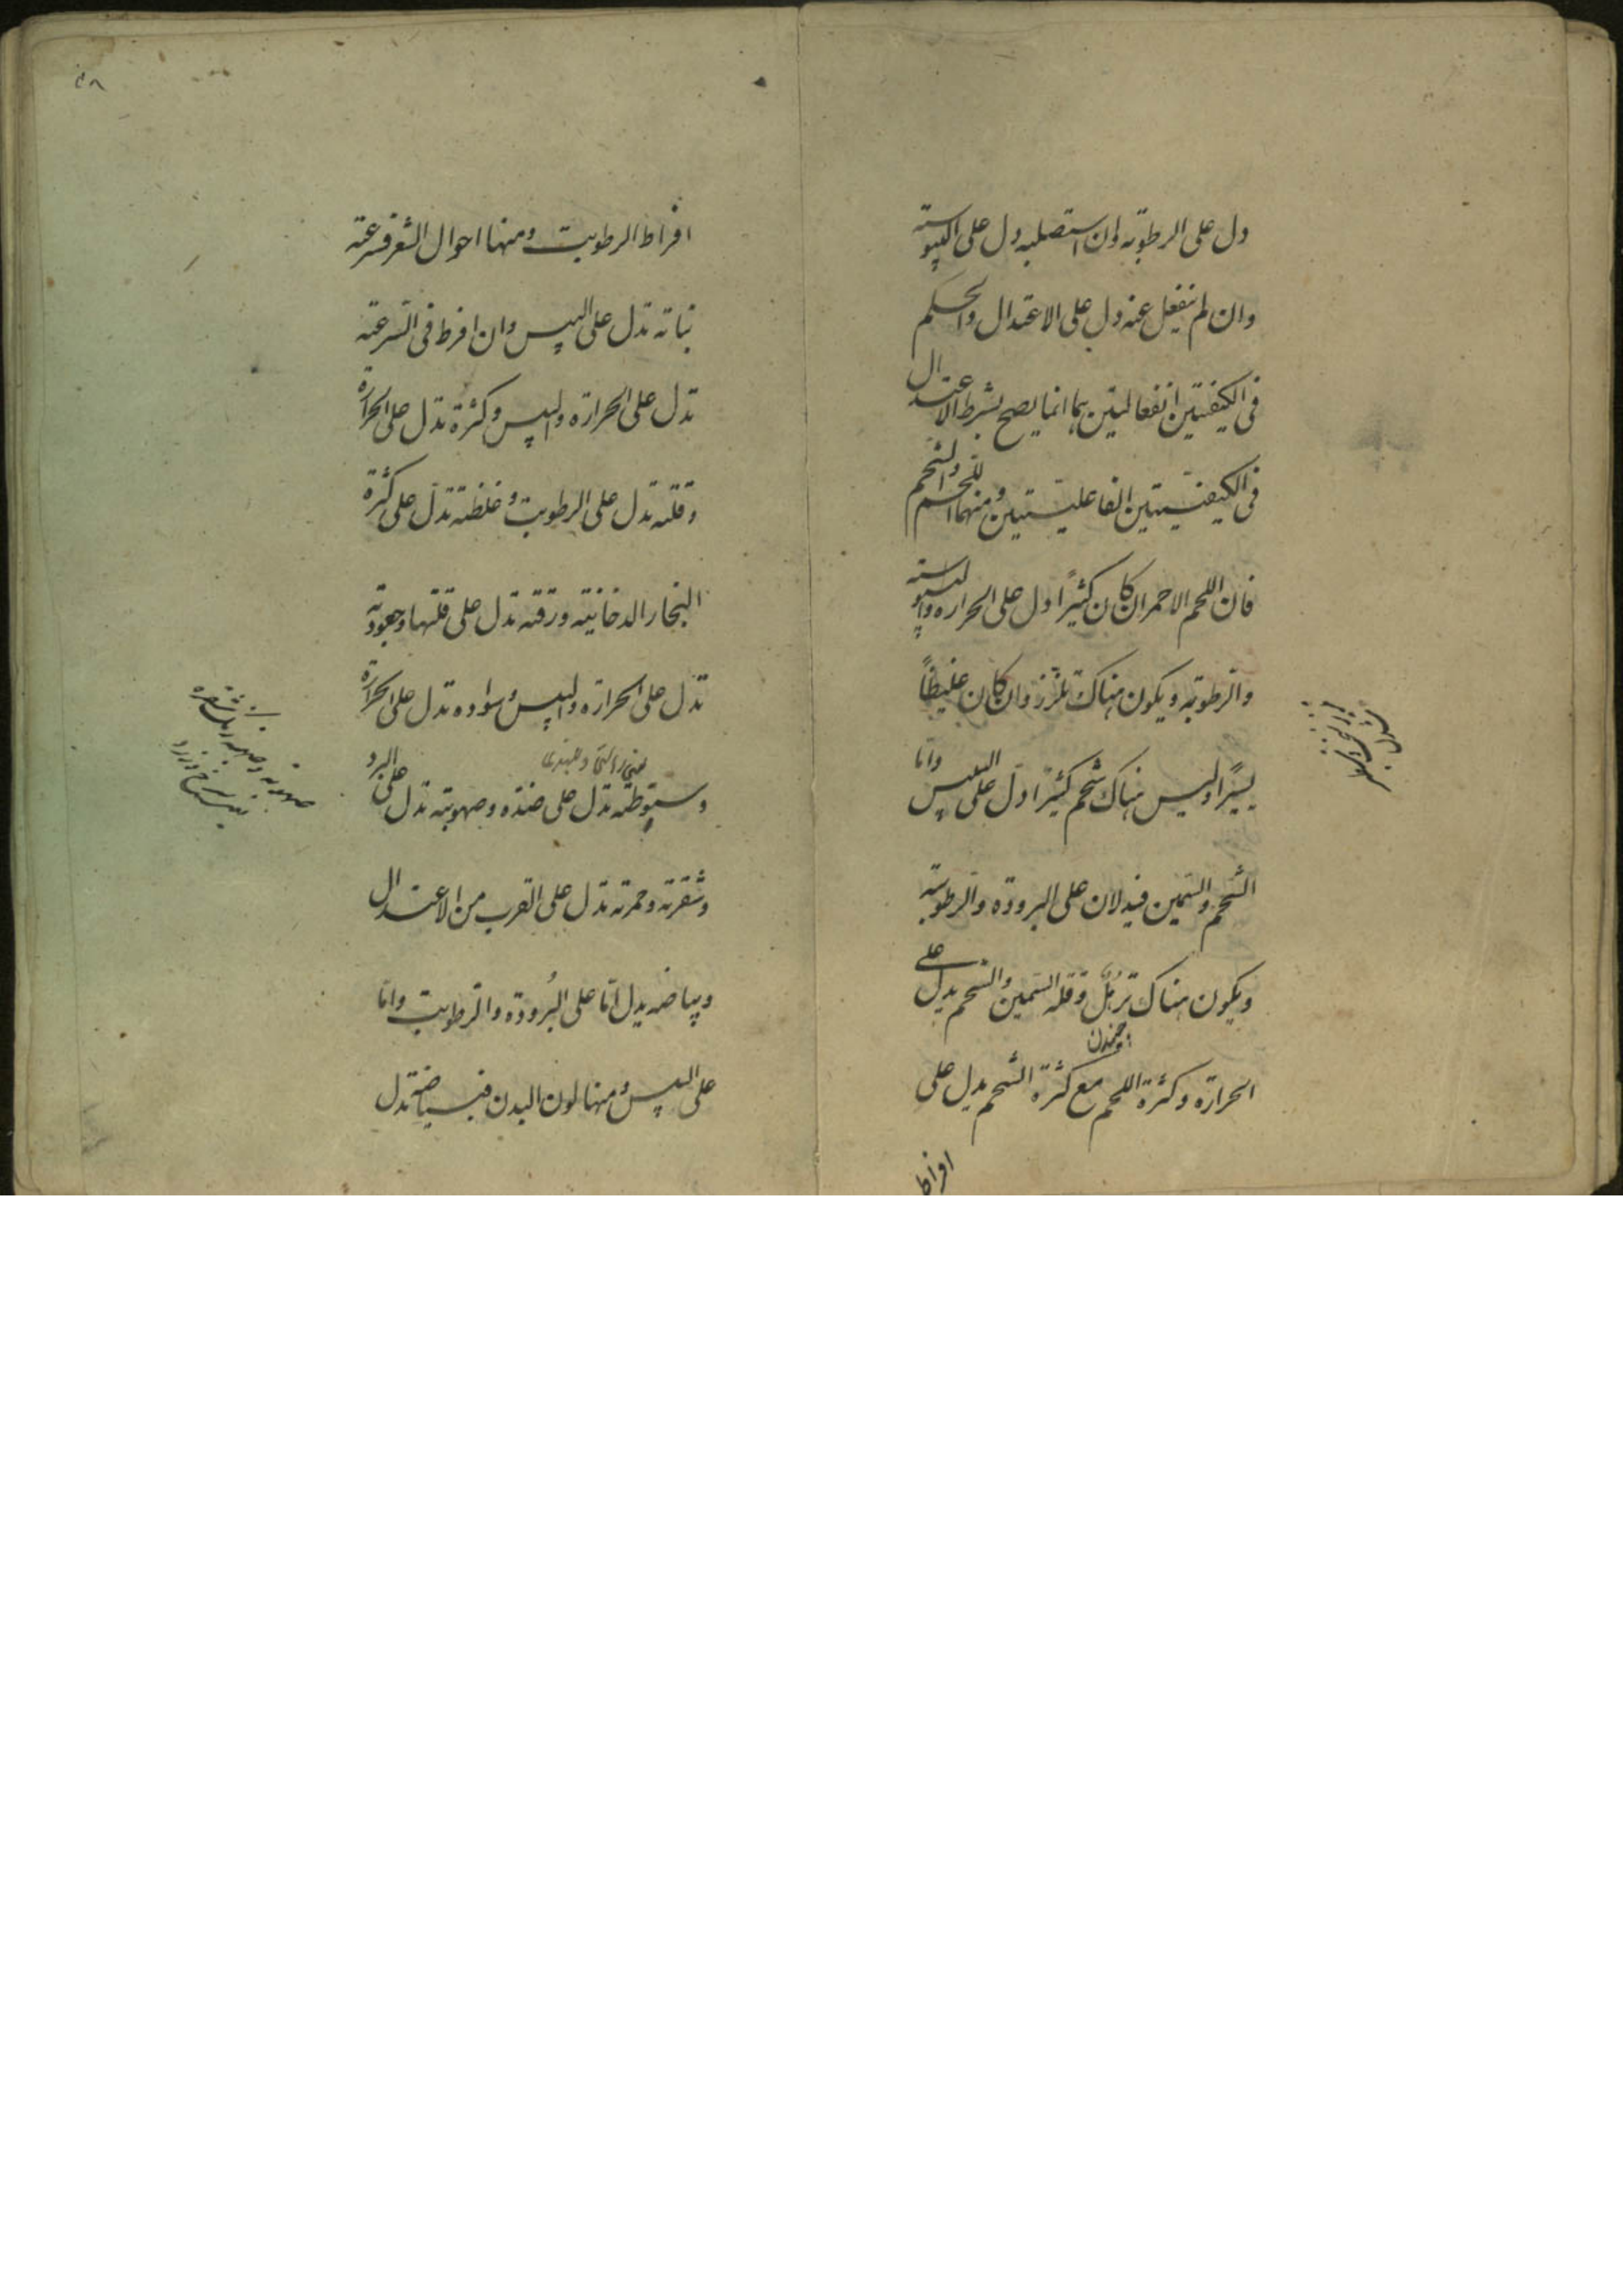 دل على الرطوبة وان استصلبه دل على اليبوسة
وان لم ينفعل عنه دل على الاعتدال والحكم
فى الكيفيتين انفعاليتين بها انما يصح بشرط الاعتدال
فى الكيفيتين الفاعليتين ومنها اللحم والشحم
فان اللحم الاحمر ان كان كثيرًا دل على الحرارة واليبوسة
والرطوبة ويكون هناك تلزز وان كان غليظًا
يسيرًا وليس هناك شحم كثيرًا دل على اليبس واما
الشحم والسمين فيدلان على البرودة والرطوبة
ويكون هناك تربّل وقلة السمين والشحم يدل على
الحرارة وكثرة اللحم مع كثرة الشحم يدل على
افراط
افراط الرطوبت ومنها احوال الشعر فسرعة
نباته تدل على اليبس وان افرط فى السرعة
تدل على الحرارة واليبس وكثرة تدل على الحرارة
وقلته تدل على الرطوبت وغلظته تدل على كثرة
البخار الدخانية ورقته تدل على قلتها وجعودته
تدل على الحرارة واليبس وسواده تدل على الحرارة
وسبوطته تدل على ضده وصهوبته تدل على البرد
وشقرته وحمرته تدل على القرب من الاعتدال
وبياضه يدل امّا على البُرودة والرطوبت وامّا
على اليبس ومنها لون البدن فبياضه تدل